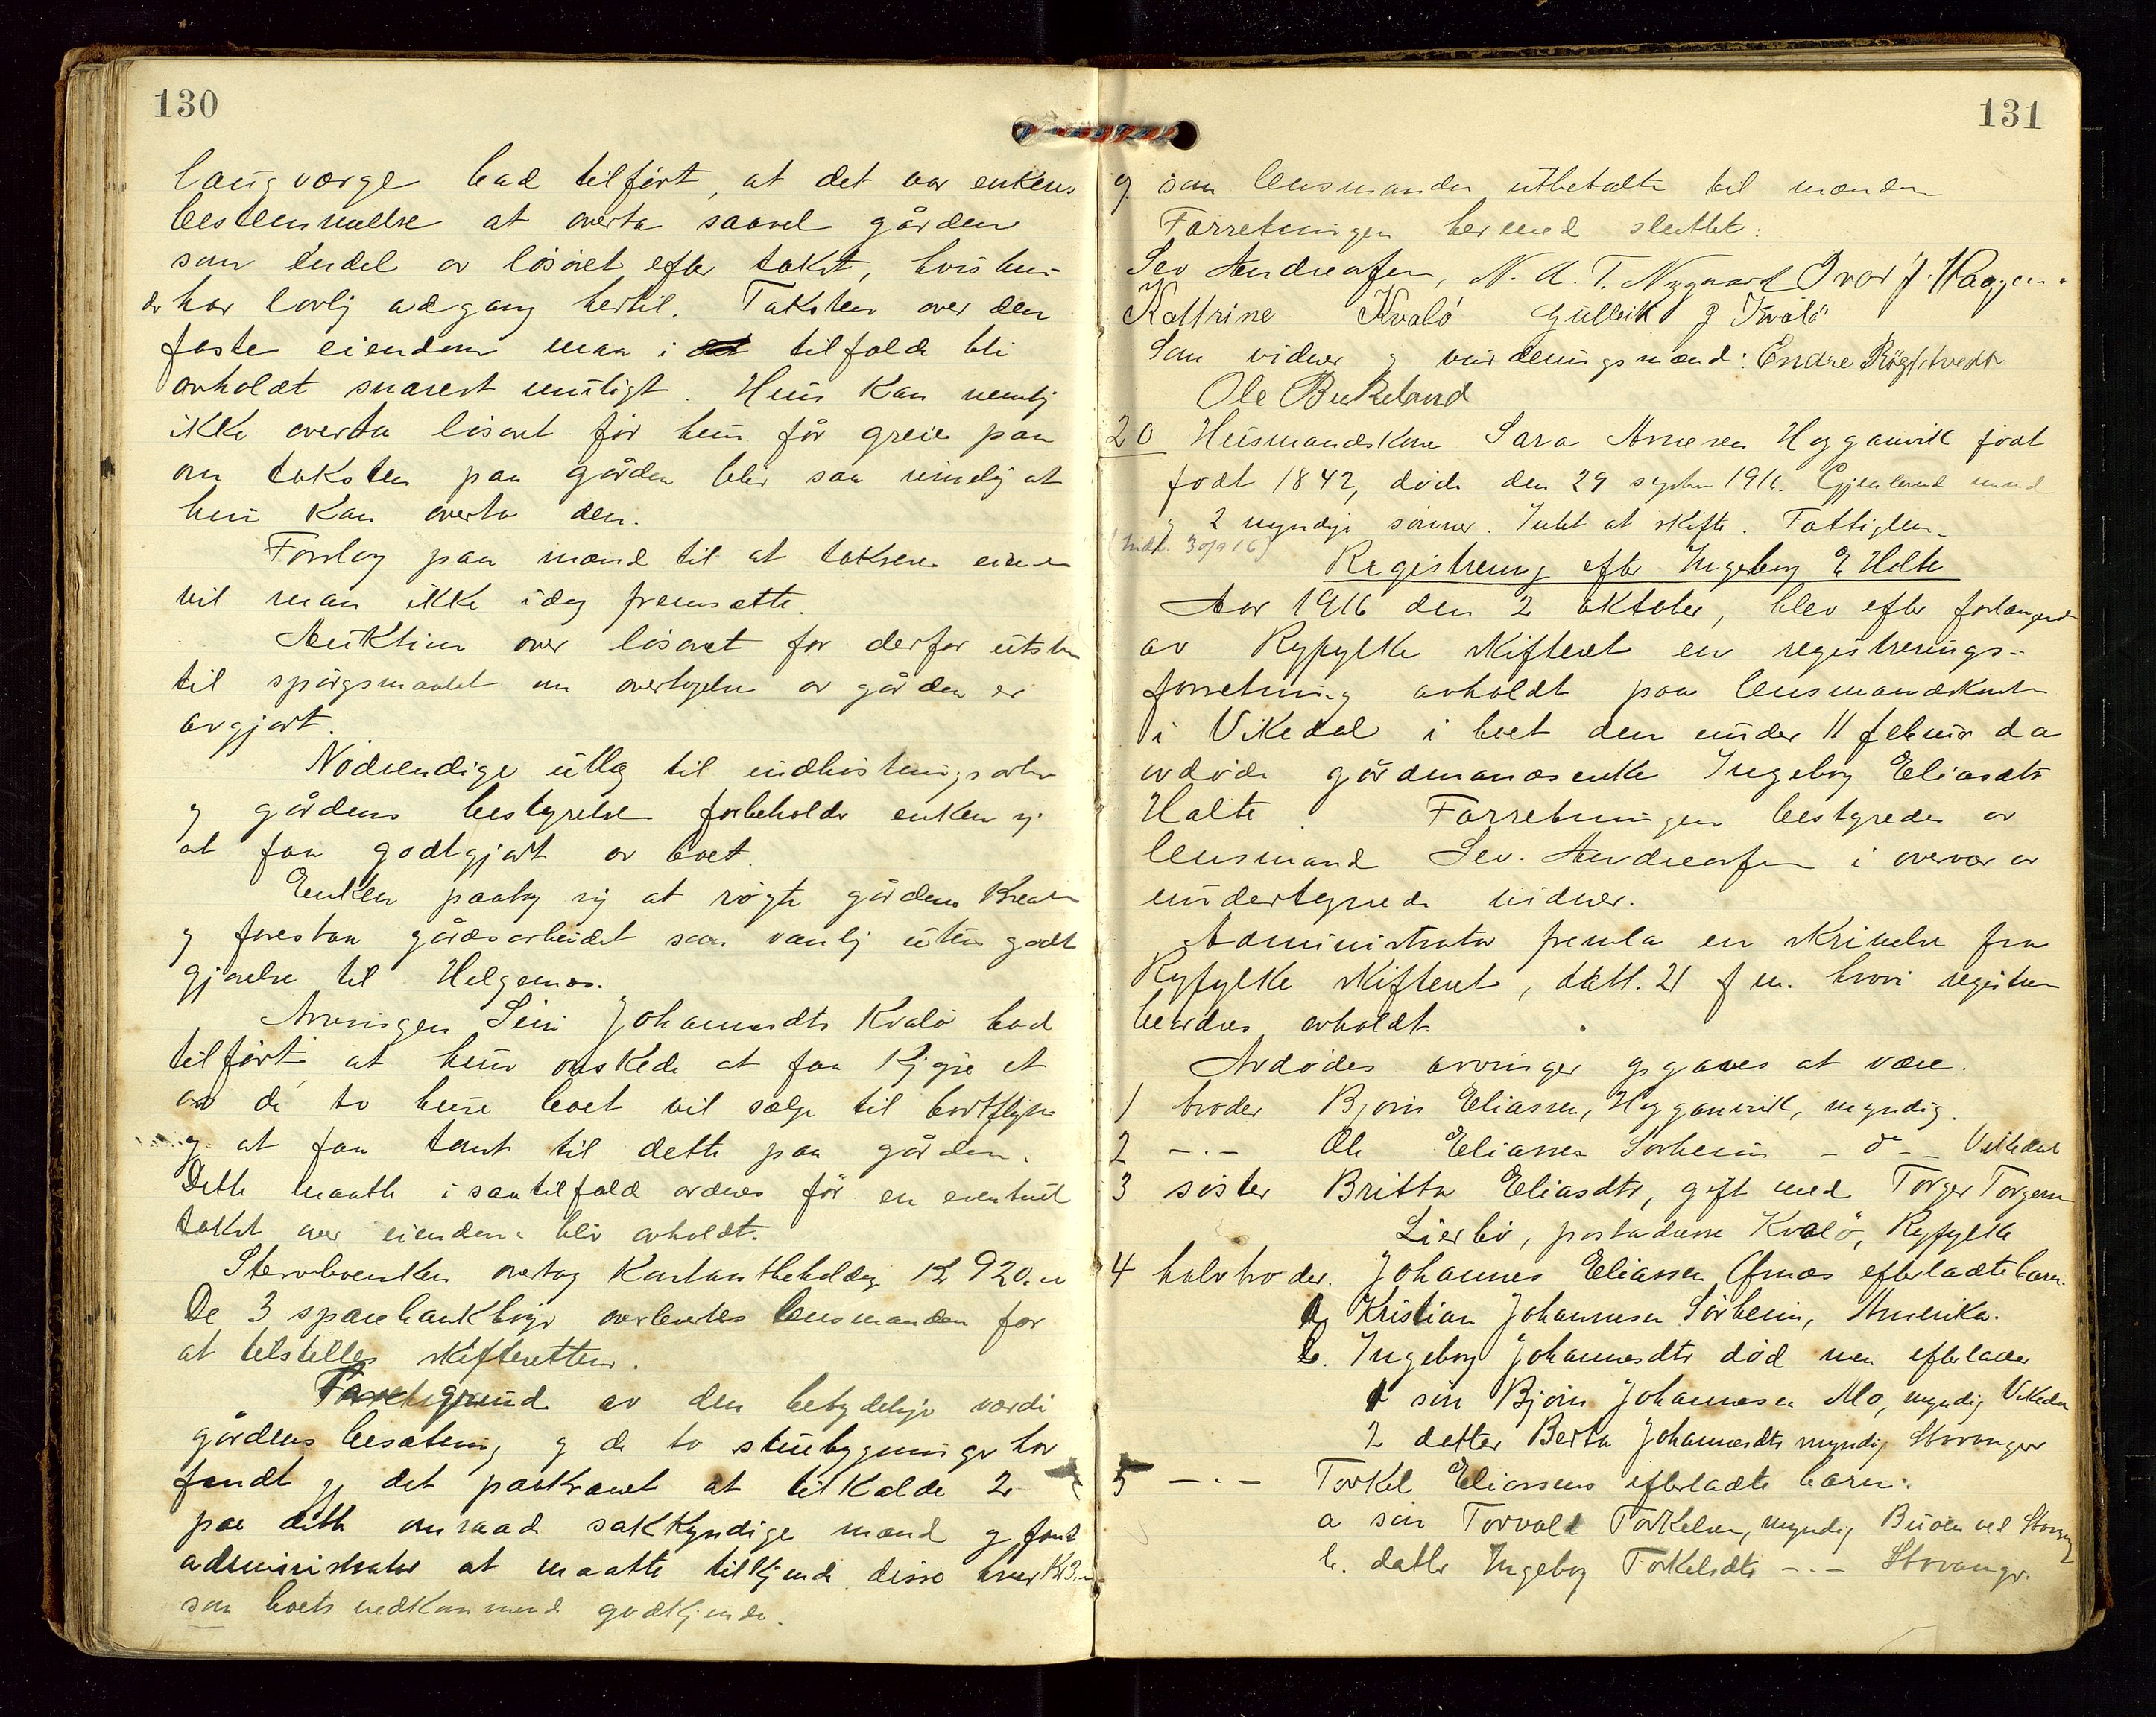 130
laugværge bad tilført, at det var enkens
bestemmelse at overta saavel gården
som endel av løsøret efter takst, hvis hun
har lovlig adgang hertil. Taksten over den
faste eiendom maa i tilfælde bli
avholdt snarest muligt. Hun kan nemlig
ikke overta løsøret før hun får greie paa
om taksten paa gården blir saa rimelig at
hun kan overta den.
Forslag paa mænd til at taksere
vil man ikke idag fremsætte.
Auktion over løsøret for derfor
til spørgsmaalet om overtagelse av gården er
avgjort.
Nødvendige utlæg til
og gårdens bestyrelse forbeholdt enken sig
at faa godtgjort av boet.
Enken paatog sig at røgte gårdens
og forestaa gårdsarbeidet som vanlig uten godt
gjørelse til Helgemæs.
Arvingen Siri Johannesdtr Kvalø bad
tilført at hun ønskede at faa kjøpe et
av de to huse boet vil sælge til bortflytn
og at faa tomt til dette paa gården.
Dette maatte i saa tilfæld ordnes før en eventuel
takst over eiendom blir avholdt.
Stervboenken overtog kontantbeholdg kr 920.
De 3 sparebankbøger overlevertes lensmanden for
at tilstilles skifteretten.
Paa grund av den betydelige værdi
gårdens besætning og de to stuebygninger har
fandt sig det paakrævet at tilkalde 2
paa dette omraade sakkyndige mænd og fandt
administrator at maatte tilkjende disse hver kr 3.
som boets vedkommende godkjende.
131
og som lensmanden utbetalte til mændene
Forretningen hermed sluttet.
Sev Andreassen, N. A. T. Nygaard Ivar J. Haggen.
Kattrine Kvalø Gullik J Kvalø
Som vidner og vurderingsmænd: Endre
Ole Birkeland
20 Husmandskone Sara Arnesen Hogganvik født
født 1842, døde den 29 septbr 1916. Gjenlevende mand
og 2 myndige sønner. Intet at skifte. Fattiglem
(Indb. 30/9 16)
Registrering efter Ingeborg E Holte
Aar 1916 den 2 oktober, blev efter forlangende
av Ryfylke skifteret en registrerings-
forretning avholdt paa lensmandskontor
i Vikedal i boet den under 11 februar da
avdøde gårdmandsenke Ingeborg Eliasdtr
Halte. Forretningen bestyredes av
lensmand Sev. Andreassen i overvær av
undertegnede vidner.
Administrator fremla en skrivelse fra
Ryfylke skifteret, datt. 21 f m. hvori registrer
beordres avholdt.
Avdødes arvinger opgaves at være.
1 broder Bjørn Eliassen, Hogganvik, myndig.
2 -.- Ole Eliassen Sørheim - do - Vikedal
3 søster Britta Eliasdtr, gift med Torger Torgersen
Lierbø, postadresse Kvalø, Ryfylke
4 halvbroder. Johannes Eliassen Ømæs efterladte barn.
a. Kristian Johannesen Sørheim, Amerika.
b. Ingeborg Johannesdtr død men efterlader
1 søn Bjørn Johannesen Mo, myndig Vikedal
2 datter Berta Johannesdtr myndig Stavanger
5 -.- Torkel Eliassens efterladte barn:
a søn Torvald Torkelsen, myndig ved Stavang
b. datter Ingeborg Torkelsdtr -.- Stavanger.